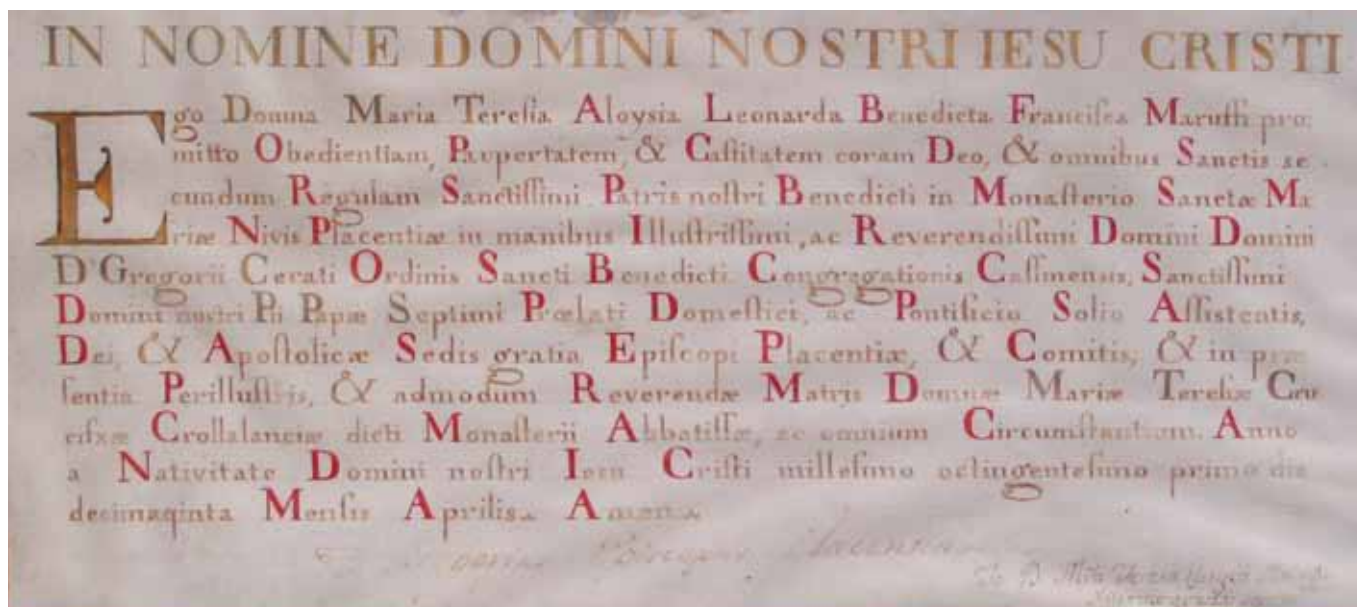 IN NOMINE DOMINI NOSTRI IESU CRISTI
Ego Donna Maria Teresia Aloysia Leonarda Benedicta Francisca Maruffi pro:
mitto Obedientiam, Paupertatem, & Castitatem coram Deo, & omnibus Sanctis se
cundum Regulam Sanctissimi Patris nostri Benedicti in Monasterio Sanctæ Ma
riæ Nivis Placentiæ in manibus Illustrissimi, ac Reverendissimi Domini Domini
D. Gregorii Cerati Ordinis Sancti Benedicti Congregationis Cassinensis, Sanctissimi
Domini nostri Pii Papæ Septimi Prælati Domestici, ac Pontificio Solio Assistentis,
Dei, & Apostolicæ Sedis gratia Episcopi Placentiæ, & Comitis, & in præ
sentia Perillustris, & admodum Reverendæ Matris Domnæ Mariæ Teresiæ Cru
cifixæ Crollalanciæ dicti Monasterii Abbatissæ, ac omnium Circumstantium. Anno
a Nativitate Domini nostri Iesu Cristi millesimo octingentesimo primo die
decimaqinta Mensis Aprilis. Amen.